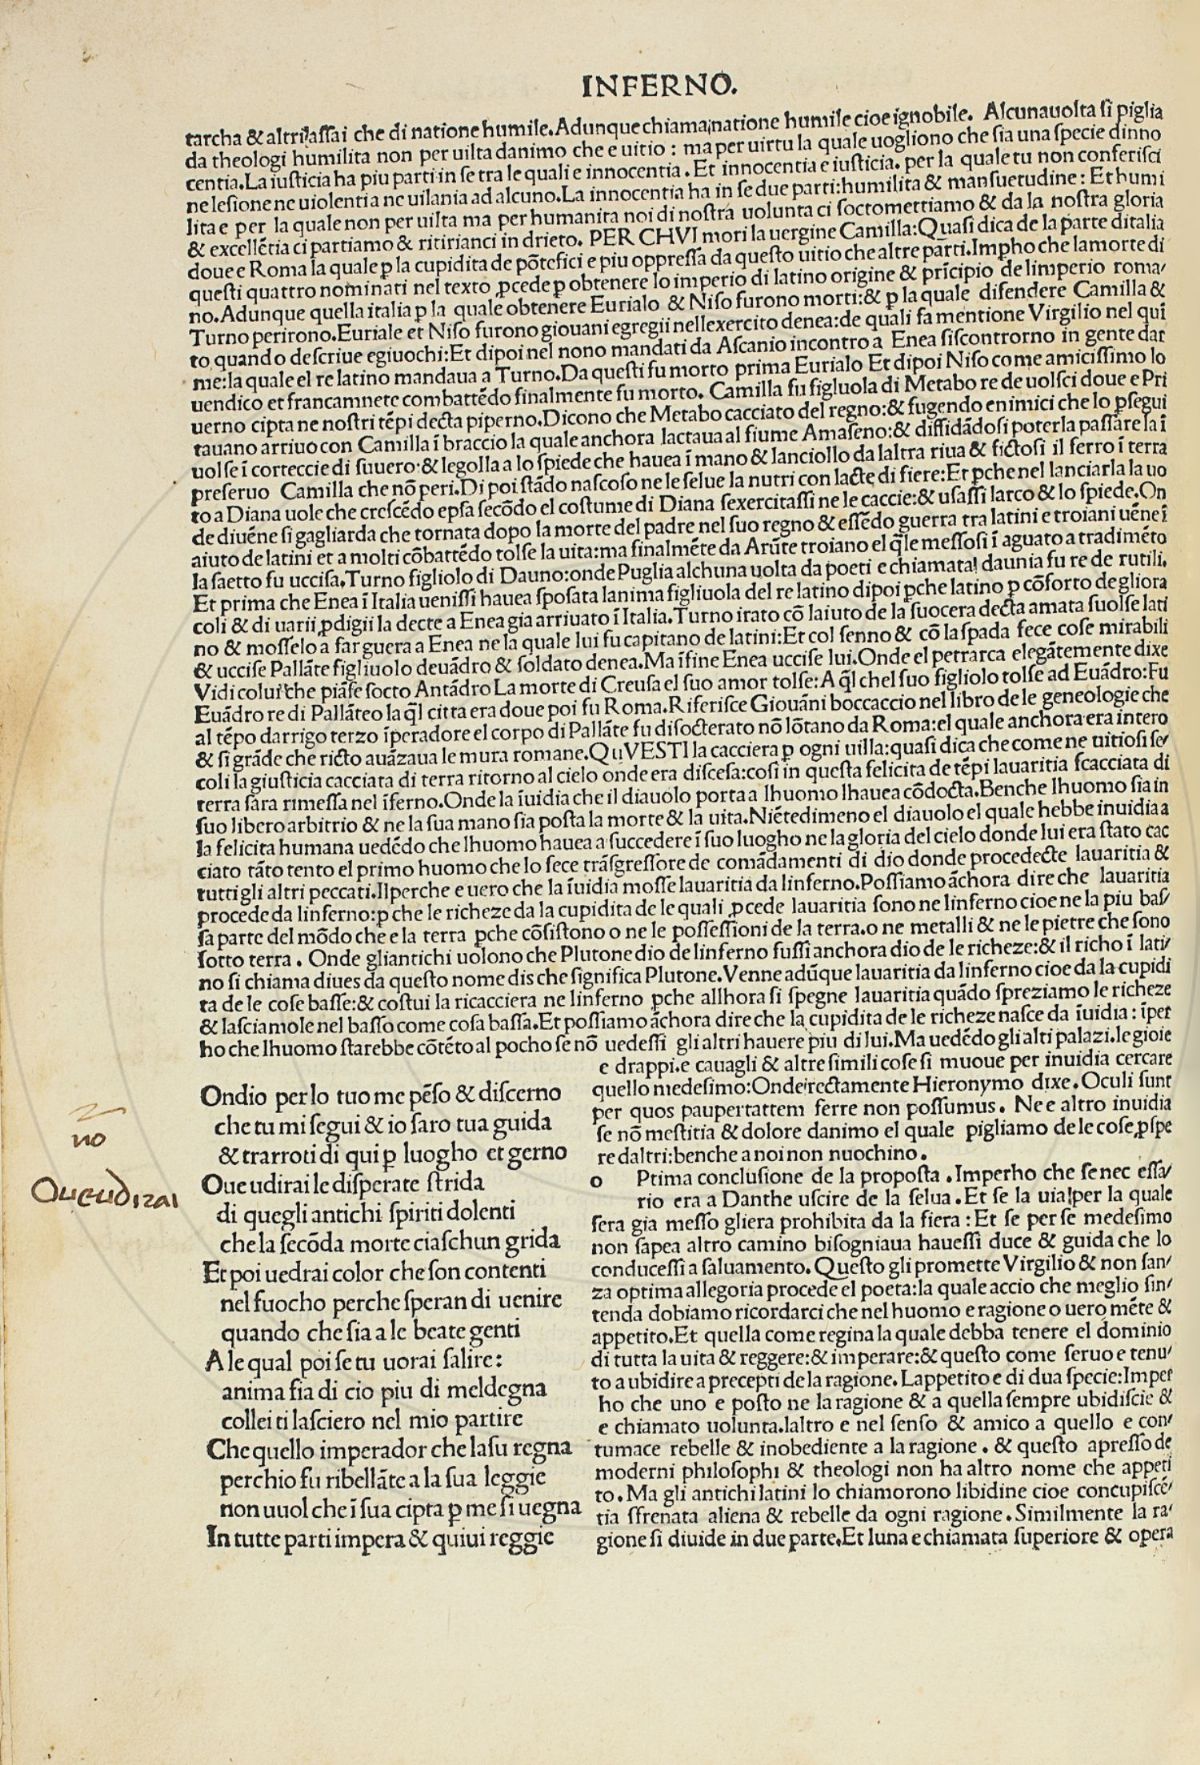 INFERNO.
tarcha & altri!assai che di natione humile.Adunque chiama,natione humile cioe ignobile. Alcunauolta si piglia
da theologi humilita non per uilta danimo che e uitio : ma per uirtu la quale uogliono che sia una specie dinno
centia.La iusticia ha piu parti in se tra le quali e innocentia . Et innocentia e iusticia. per la quale tu non conferisci
ne lesione ne uiolentia ne uilania ad alcuno.La innocentia ha in se due parti:humilita & mansuetudine : Et humi
lita e per la quale non per uilta ma per humanita noi di nostra uolunta ci soctomettiamo & da la nostra gloria
& excellētia ci partiamo & ritirianci in drieto. PER CHVI mori la uergine Camilla:Quasi dica de la parte ditalia
doue e Roma la quale ꝑ la cupidita de pōtefici e piu oppressa da questo uitio che altre parti.Impho che lamorte di
questi quattro nominati nel texto ꝓcede ꝑ obtenere lo imperio di latino origine & prīcipio de limperio roma/
no.Adunque quella italia ꝑ la quale obtenere Eurialo & Niso furono morti:& ꝑ la quale difendere Camilla &
Turno perirono.Euriale et Niso furono giouani egregii nellexercito denea:de quali fa mentione Virgilio nel qui
to quando descriue egiuochi:Et dipoi nel nono mandati da Ascanio incontro a Enea siscontrorno in gente dar
me:la quale el re latino mandaua a Turno.Da questi fu morto prima Eurialo Et dipoi Niso come amicissimo lo
uendico et francamnete combattēdo finalmente fu morto. Camilla fu figluola di Metabo re de uolsci doue e Pri
uerno cipta ne nostri tēpi decta piperno.Dicono che Metabo cacciato del regno:& fugendo enimici che lo ꝑsegui
tauano arriuo con Camilla ī braccio la quale anchora lactaua al fiume Amaseno:& diffidādosi poterla passare la ī
uolse ī corteccie di suuero·& legolla a lo spiede che hauea ī mano & lanciollo da laltra riua & fictosi il ferro ī terra
preseruo Camilla che nō peri.Di poi stādo nascoso ne le selue la nutri con lacte di fiere:Et ꝑche nel lanciarla la uo
to a Diana uole che crescēdo epsa secōdo el costume di Diana sexercitassi ne le caccie:& usassi larco & lo spiede.On
de diuēne si gagliarda che tornata dopo la morte del padre nel suo regno & essēdo guerra tra latini e troiani uēne ī
aiuto de latini et a molti cōbattēdo tolse la uita:ma finalmēte da Arūte troiano el q̄le messosi ī aguato a tradimēto
la saetto fu uccisa.Turno figliolo di Dauno:onde Puglia alchuna uolta da poeti e chiamata! daunia fu re de rutili.
Et prima che Enea ī Italia uenissi hauea sposata lanima figliuola del re latino dipoi ꝑche latino ꝑ cōsorto de gliora
coli & di uarii ꝓdigii la decte a Enea gia arriuato ī Italia.Turno irato cō laiuto de la suocera decta amata suolse lati
no & mosselo a far guera a Enea ne la quale lui fu capitano de latini:Et col senno & cō la spada fece cose mirabili
& uccise Pallāte figliuolo deuādro & soldato denea.Ma īfine Enea uccise lui.Onde el petrarca elegātemente dixe
Vidi colui!che piāse socto Antādro La morte di Creusa el suo amor tolse:A q̄l chel suo figliolo tolse ad Euādro:Fu
Euādro re di Pallāteo la q̄l citta era doue poi fu Roma.Riferisce Giouāni boccaccio nel libro de le geneologie che
al tēpo darrigo terzo īperadore el corpo di Pallāte fu disocterato nō lōtano da Roma:el quale anchora era intero
& si grāde che ricto auāzaua le mura romane.QuVESTI la cacciera ꝑ ogni uilla:quasi dica che come ne uitiosi se/
coli la giusticia cacciata di terra ritorno al cielo onde era discesa:cosi in questa felicita de tēpi lauaritia scacciata di
terra sara rimessa nel īferno.Onde la īuidia che il diauolo porta a lhuomo lhauea cōdocta.Benche lhuomo sia in
suo libero arbitrio & ne la sua mano sia posta la morte & la uita.Niētedimeno el diauolo el quale hebbe inuidia a
la felicita humana uedēdo che lhuomo hauea a succedere ī suo luogho ne la gloria del cielo donde lui era stato cac
ciato tāto tento el primo huomo che lo fece trāsgressore de comādamenti di dio donde procedecte lauaritia &
tutti gli altri peccati.Ilperche e uero che la īuidia mosse lauaritia da linferno.Possiamo āchora dire che lauaritia
procede da linferno:ꝑ che le richeze da la cupidita de le quali ꝓcede lauaritia sono ne linferno cioe ne la piu bas/
sa parte del mōdo che e la terra ꝑche cōsistono o ne le possessioni de la terra.o ne metalli & ne le pietre che sono
sotto terra . Onde gliantichi uolono che Plutone dio de linferno fussi anchora dio de le richeze:& il richo ī lati/
no si chiama diues da questo nome dis che significa Plutone.Venne adūque lauaritia da linferno cioe da la cupidi
ta de le cose basse:& costui la ricacciera ne linferno ꝑche allhora si spegne lauaritia quādo spreziamo le richeze
& lasciamole nel basso come cosa bassa.Et possiamo āchora dire che la cupidita de le richeze nasce da īuidia : īper
ho che lhuomo starebbe cōtēto al pocho se nō uedessi gli altri hauere piu di lui.Ma uedēdo gli alti palazi.le gioie
e drappi.e cauagli & altre simili cose si muoue per inuidia cercare
quello medesimo:Onde!rectamente Hieronymo dixe.Oculi sunt
per quos paupertattem ferre non possumus. Ne e altro inuidia
se nō mestitia & dolore danimo el quale pigliamo de le cose ꝓspe
re daltri:benche a noi non nuochino.
o Prima conclusione de la proposta . Imperho che se nec essa/
rio era a Danthe uscire de la selua . Et se la uia!per la quale
sera gia messo gliera prohibita da la fiera : Et se per se medesimo
non sapea altro camino bisogniaua hauessi duce & guida che lo
conducessi a saluamento. Questo gli promette Virgilio & non san/
za optima allegoria procede el poeta:la quale accio che meglio sin/
tenda dobiamo ricordarci che nel huomo e ragione o uero mēte &
appetito.Et quella come regina la quale debba tenere el dominio
di tutta la uita & reggere:& imperare:& questo come seruo e tenu/
to a ubidire a precepti de la ragione. Lappetito e di dua specie:Imper
ho che uno e posto ne la ragione & a quella sempre ubidiscie &
e chiamato uolunta.laltro e nel senso & amico a quello e con/
tumace rebelle & inobediente a la ragione . & questo apresso de
moderni philosophi & theologi non ha altro nome che appeti
to . Ma gli antichi latini lo chiamorono libidine cioe concupiscē/
tia sfrenata aliena & rebelle da ogni ragione. Similmente la ra/
gione si diuide in due parte.Et luna e chiamata superiore & opera
Ondio per lo tuo me pēso & discerno
che tu mi segui & io saro tua guida
& trarroti di qui ꝑ luogho et gerno
Oue udirai le disperate strida
di quegli antichi spiriti dolenti
che la secōda morte ciaschun grida
Et poi uedrai color che son contenti
nel fuocho perche speran di uenire
quando che sia a le beate genti
A le qual poi se tu uorai salire:
anima fia di cio piu di me!degna
collei ti lasciero nel mio partire
Che quello imperador che lasu regna
perchio fu ribellāte a la sua leggie
non uuol che ī sua cipta ꝑ me si uegna
In tutte parti impera & quiui reggie
no
Oueudirai